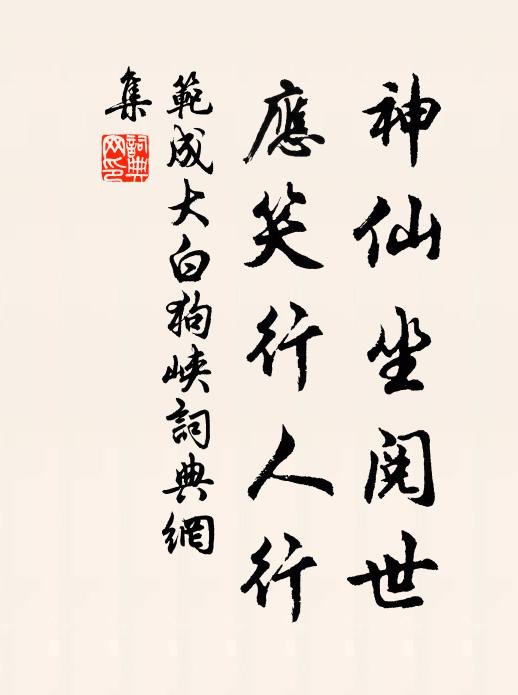 神仙坐閱世
應笑行人行
範成大白狗峽詞典網
集
詞典
网印